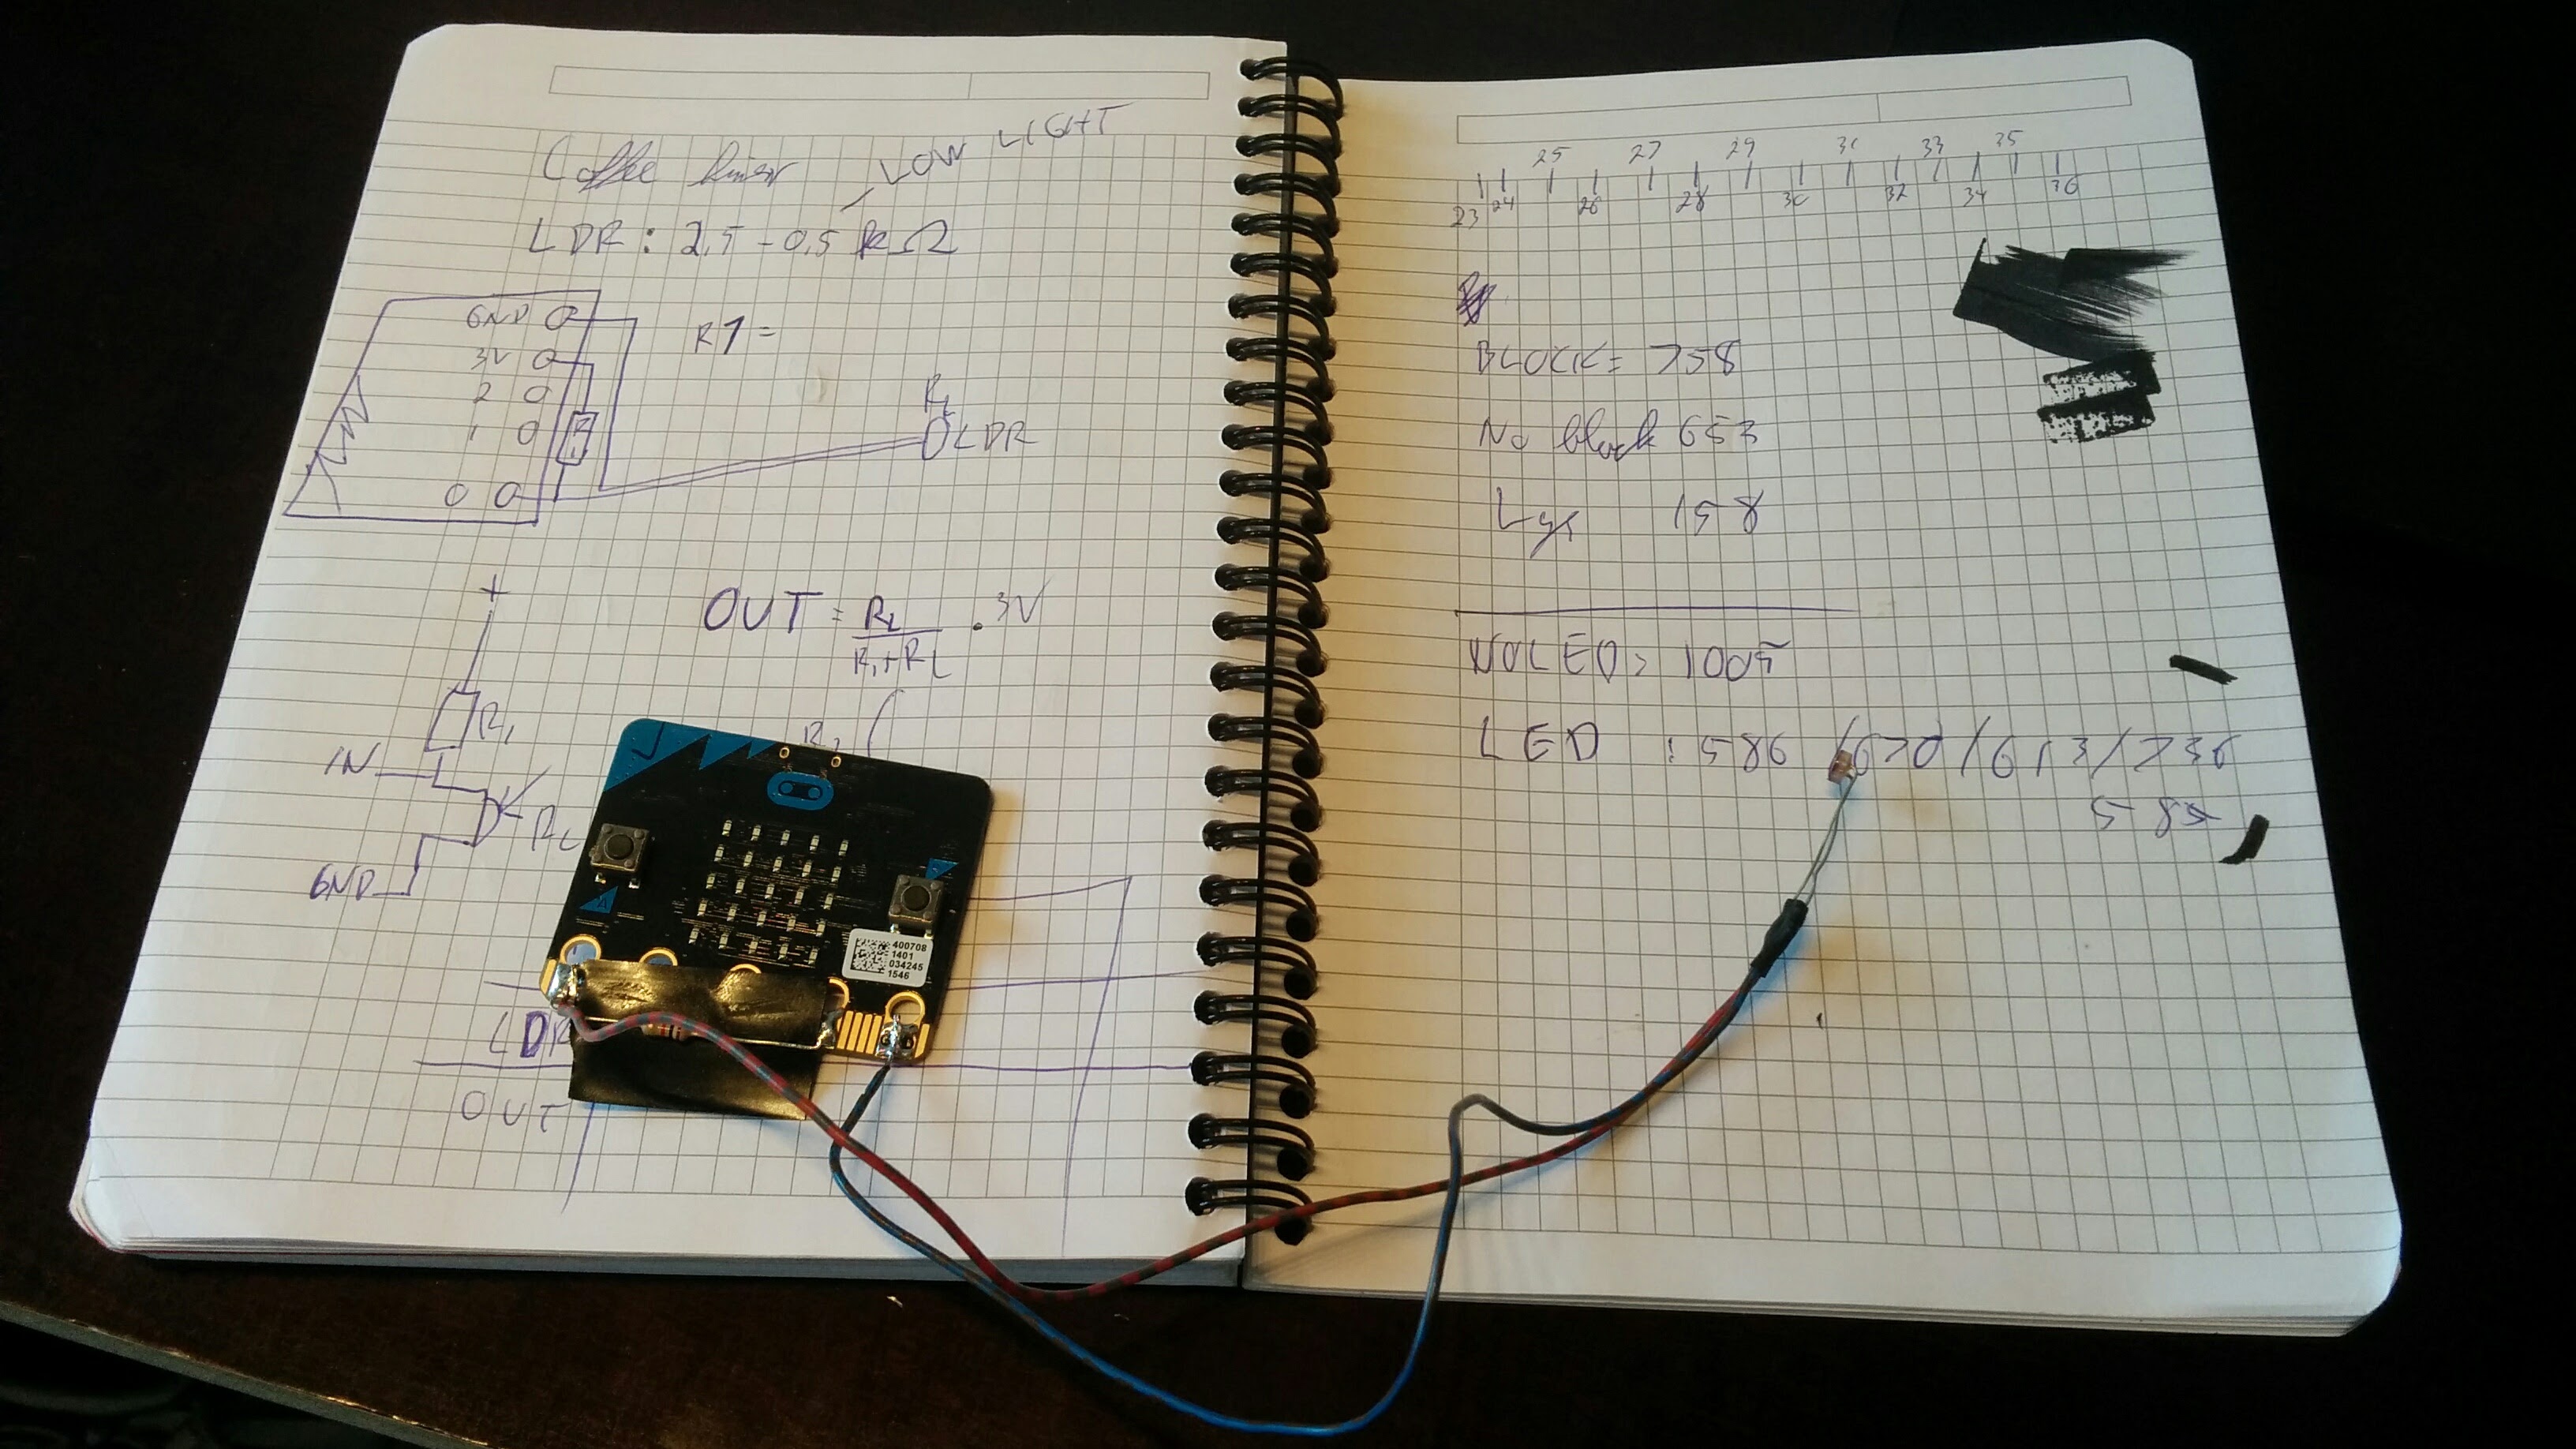 Coffee timer
LOW LIGHT
LDR: 2,5 - 0,5 kΩ
GND
3V
2
1
0
R1 =
R1
RL
LDR
+
R1
IN
RL
GND
OUT = RL / R1+RL . 3V
400708
1401
034245
1546
A
LDR
OUT
25 27 29 31 33 35
23 24 26 28 30 32 34 36
BLOCK = 758
No block 653
Lys 158
NOLED: 1005
LED : 586 /670 / 613 / 736
585